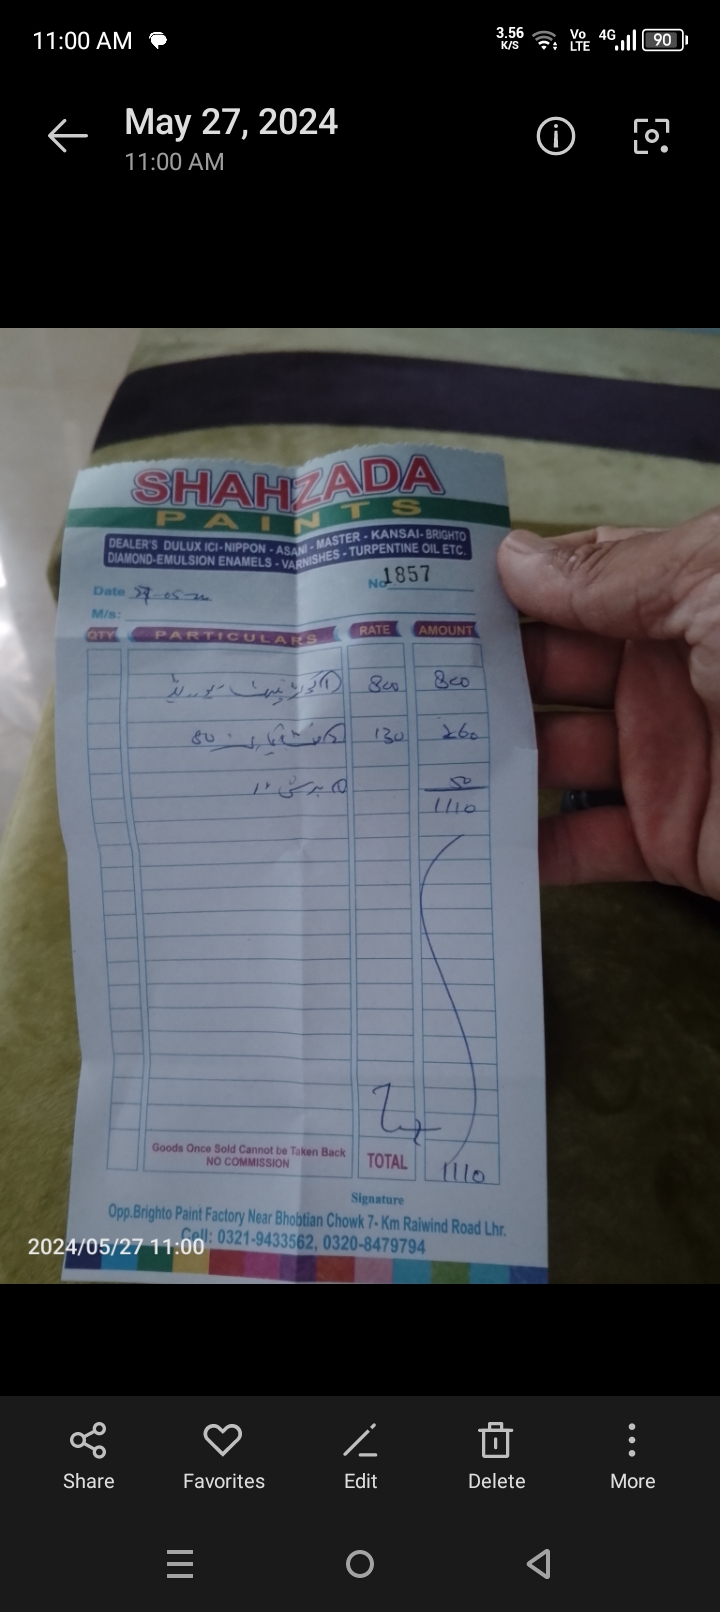 11:00 AM
3.56 K/S Vo LTE 4G 90
May 27, 2024
11:00 AM
SHAHZADA
PAINTS
DEALER'S DULUX ICI-NIPPON - ASANI - MASTER - KANSAI- BRIGHTO
DIAMOND-EMULSION ENAMELS - VARNISHES - TURPENTINE OIL ETC.
Date
No 1857
M/s:
QTY PARTICULARS RATE AMOUNT
800 800
80 130 260
برش 50
1110
Goods Once Sold Cannot be Taken Back
NO COMMISSION
TOTAL 1110
Signature
Opp.Brighto Paint Factory Near Bhobtian Chowk 7- Km Raiwind Road Lhr.
Cell: 0321-9433562, 0320-8479794
2024/05/27 11:00
Share Favorites Edit Delete More